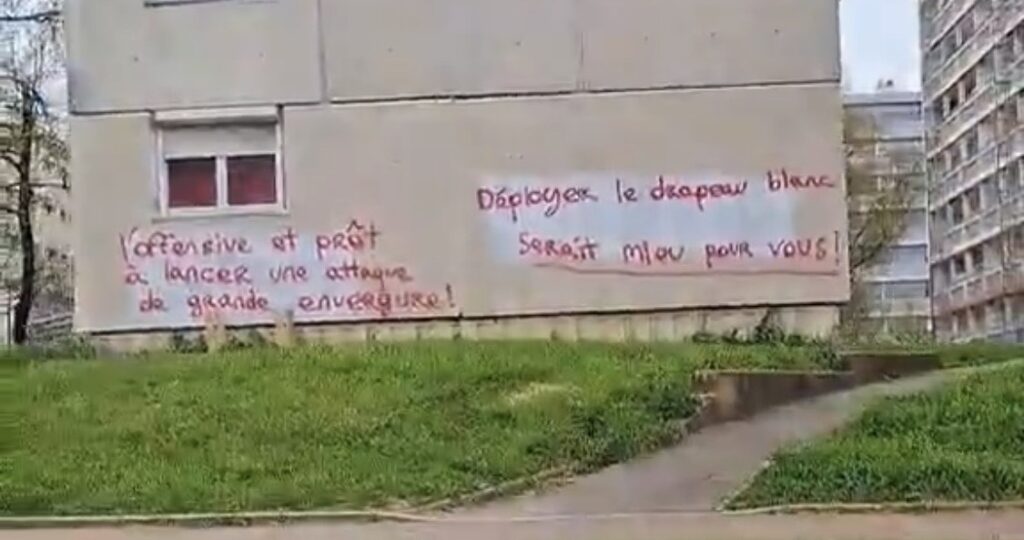 l'offensive et prêt
à lancer une attaque
de grande envergure!
Déployer le drapeau blanc
serait miou pour vous!